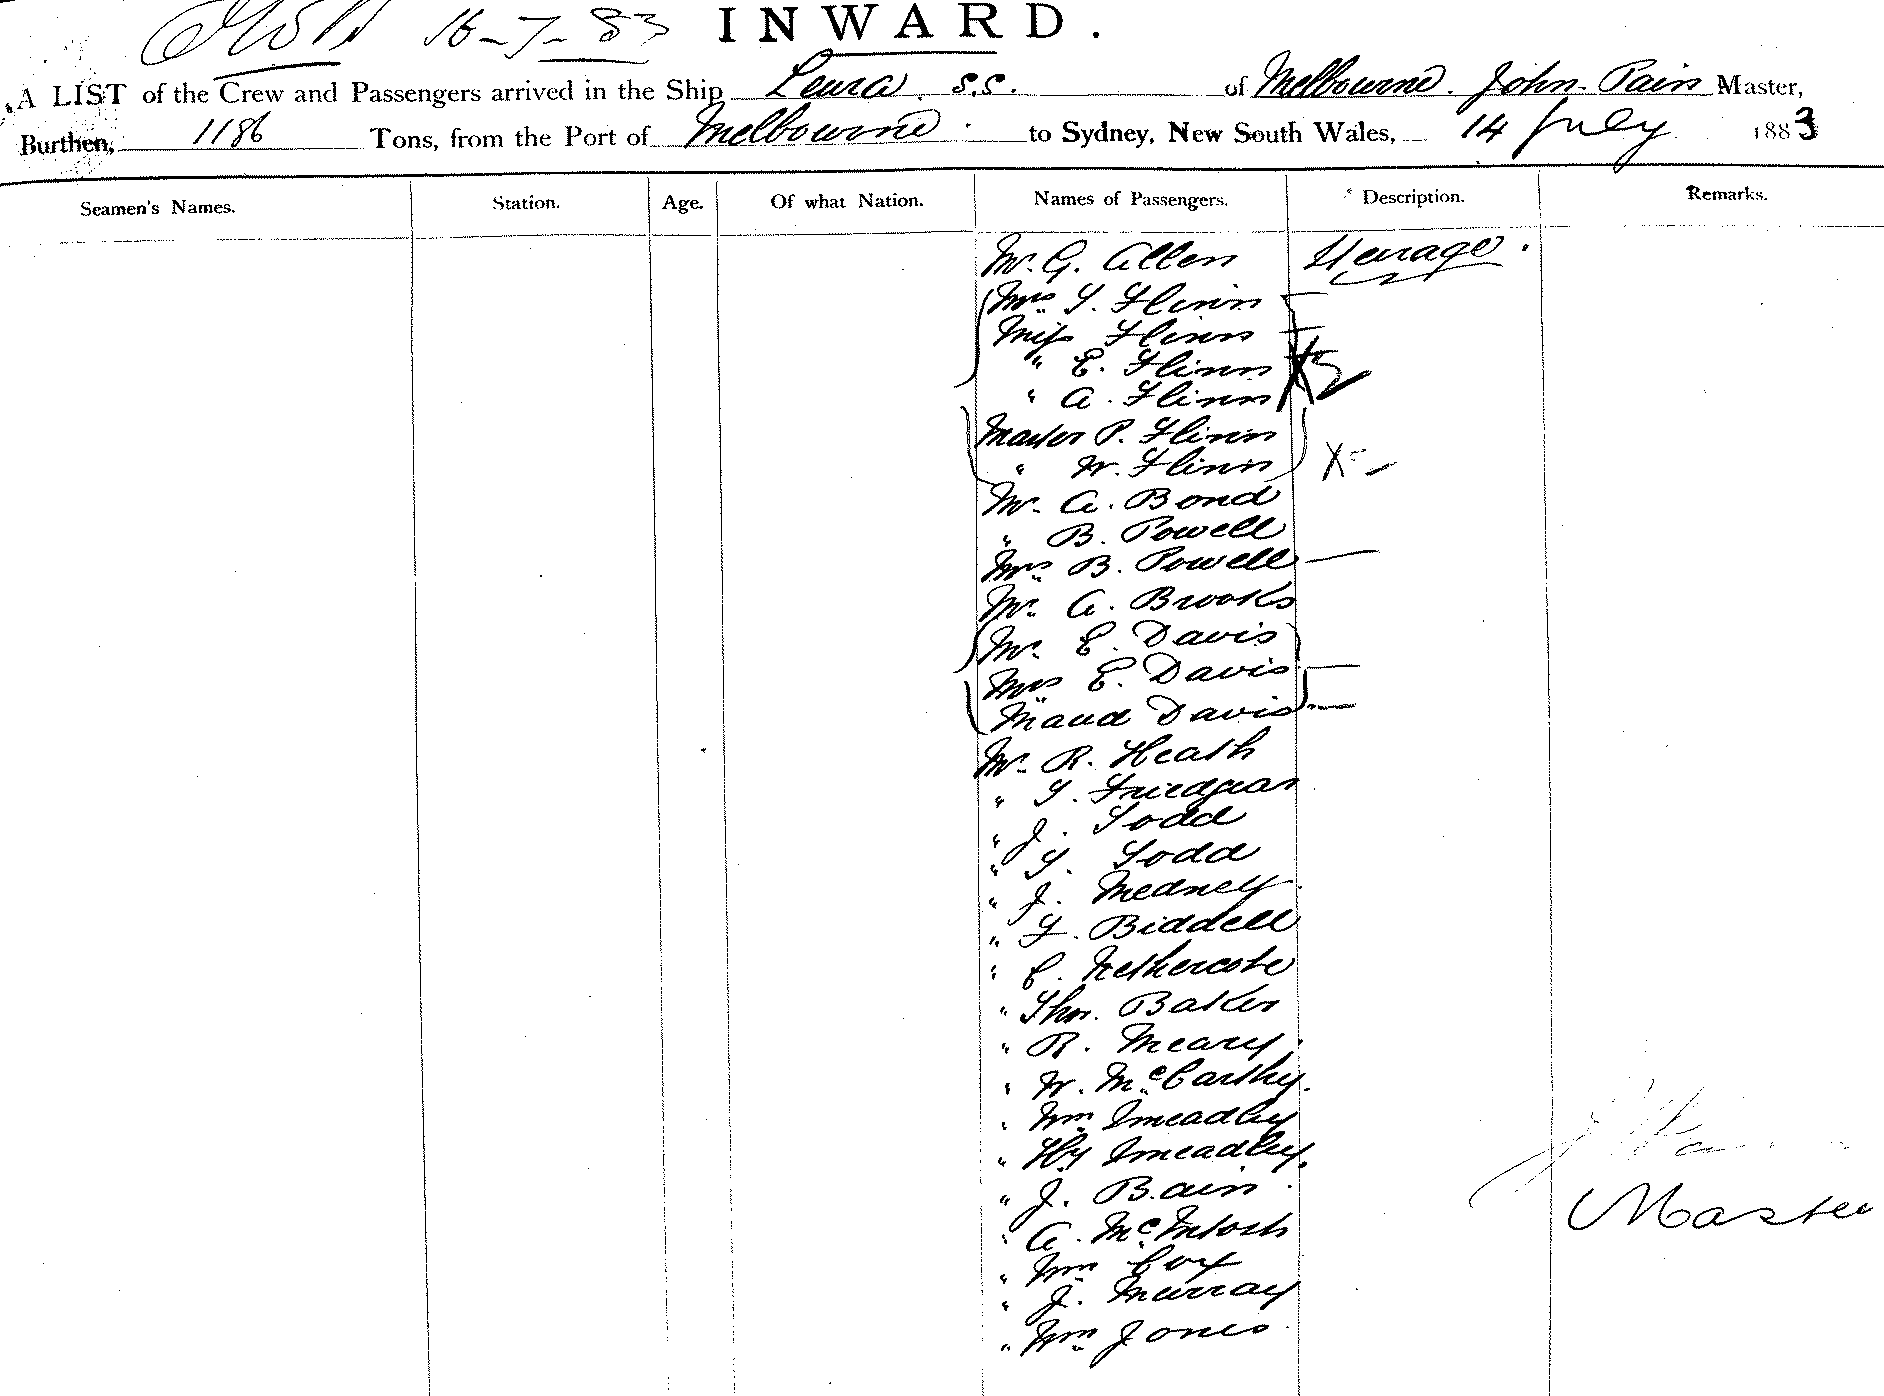 16-7-83 INWARD.
A LIST of the Crew and Passengers arrived in the Ship Leura s.s. of Melbourne. John Pain Master,
Burthen, 1186 Tons, from the Port of Melbourne to Sydney, New South Wales, 14 July 1883
Seamen's Names. Station. Age. Of what Nation. Names of Passengers. Description. Remarks.
Mr. G. Allen Steerage.
Mrs S. Flinn
Miss Flinn
" E. Flinn
" A. Flinn
Master P. Flinn
" W. Flinn
Mr. A. Bond
" B. Powell
Mrs B. Powell
Mr. A. Brooks
Mr. E. Davis
Mrs E. Davis
Maud Davis
Mr. R. Heath
" J. Todd
" T. Todd
" J. Medney
" F. Biddell
" C. Nethercote
" Thos. Baker
" R. Meary
" W. McCarthy.
" Wm Smeadley
" Hy Smeadley.
" J. Bain
" A. McIntosh
" Wm Cox
" J. Murray
" Wm Jones
Master